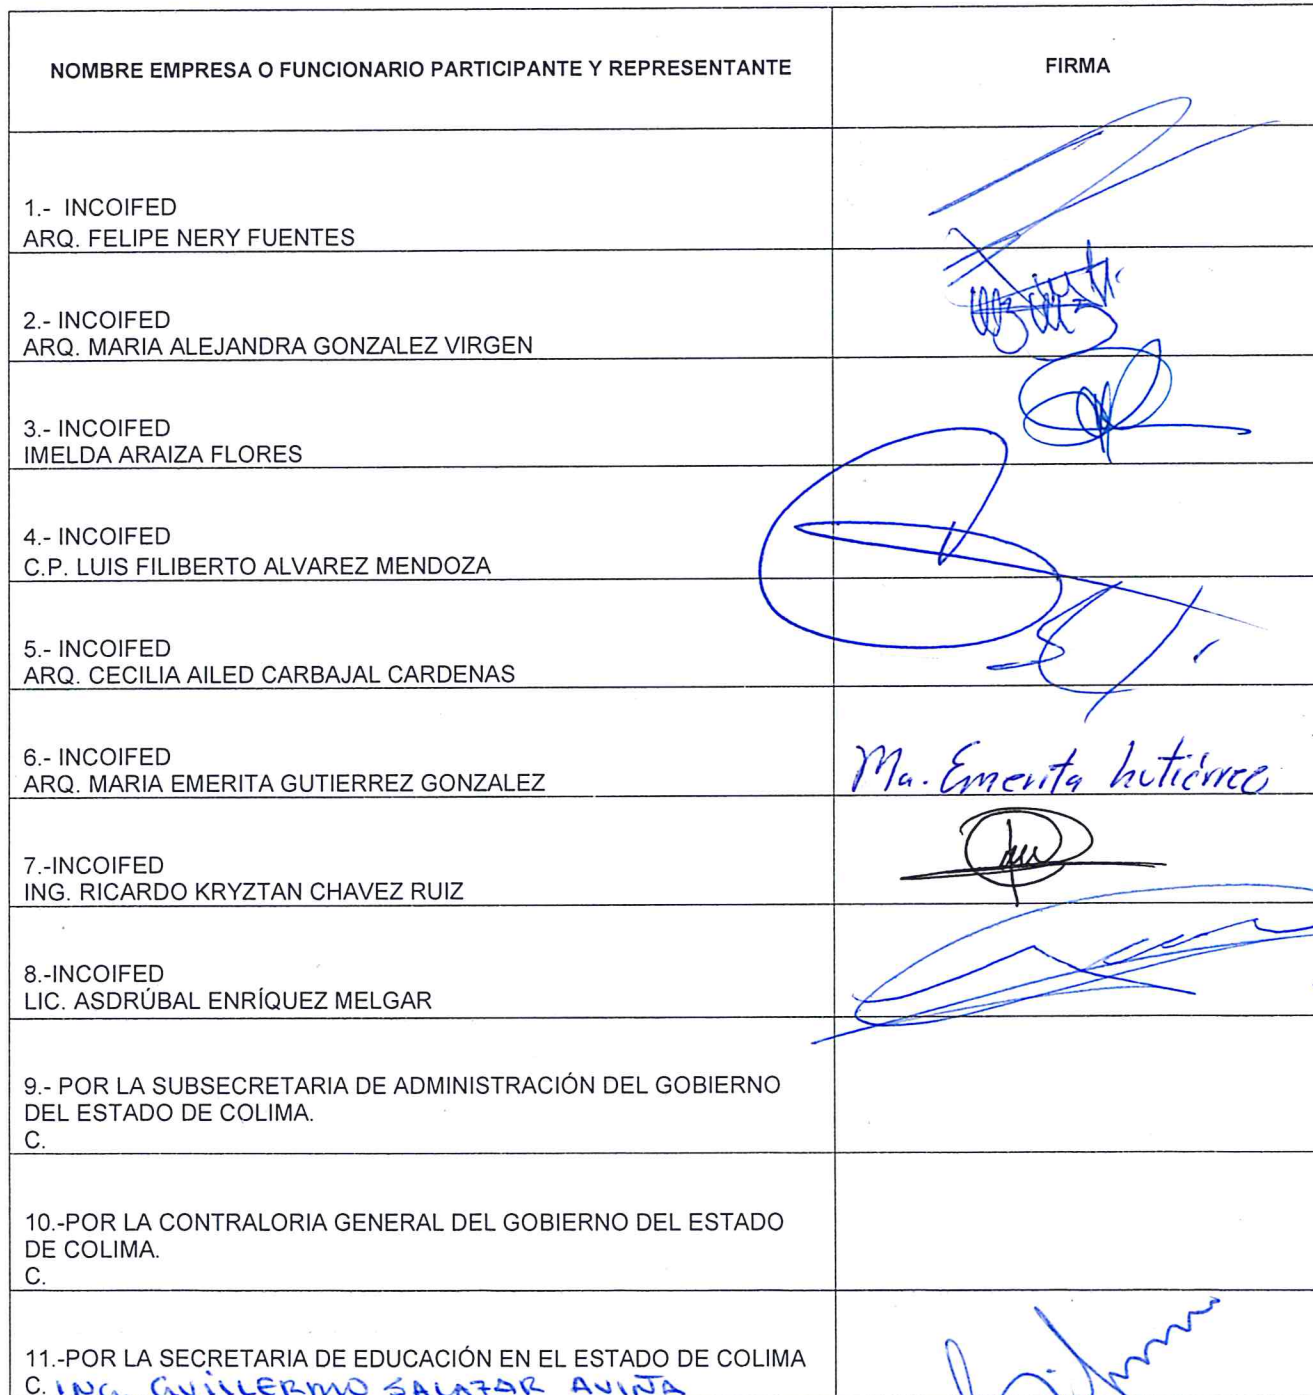 NOMBRE EMPRESA O FUNCIONARIO PARTICIPANTE Y REPRESENTANTE
FIRMA
1.- INCOIFED
ARQ. FELIPE NERY FUENTES
2.- INCOIFED
ARQ. MARIA ALEJANDRA GONZALEZ VIRGEN
3.- INCOIFED
IMELDA ARAIZA FLORES
4.- INCOIFED
C.P. LUIS FILIBERTO ALVAREZ MENDOZA
5.- INCOIFED
ARQ. CECILIA AILED CARBAJAL CARDENAS
6.- INCOIFED
ARQ. MARIA EMERITA GUTIERREZ GONZALEZ
Ma. Emerita Gutiérrez
7.-INCOIFED
ING. RICARDO KRYZTAN CHAVEZ RUIZ
8.-INCOIFED
LIC. ASDRÚBAL ENRÍQUEZ MELGAR
9.- POR LA SUBSECRETARIA DE ADMINISTRACIÓN DEL GOBIERNO
DEL ESTADO DE COLIMA.
C.
10.-POR LA CONTRALORIA GENERAL DEL GOBIERNO DEL ESTADO
DE COLIMA.
C.
11.-POR LA SECRETARIA DE EDUCACIÓN EN EL ESTADO DE COLIMA
C. ING. GUILLERMO SALAZAR AVIÑA